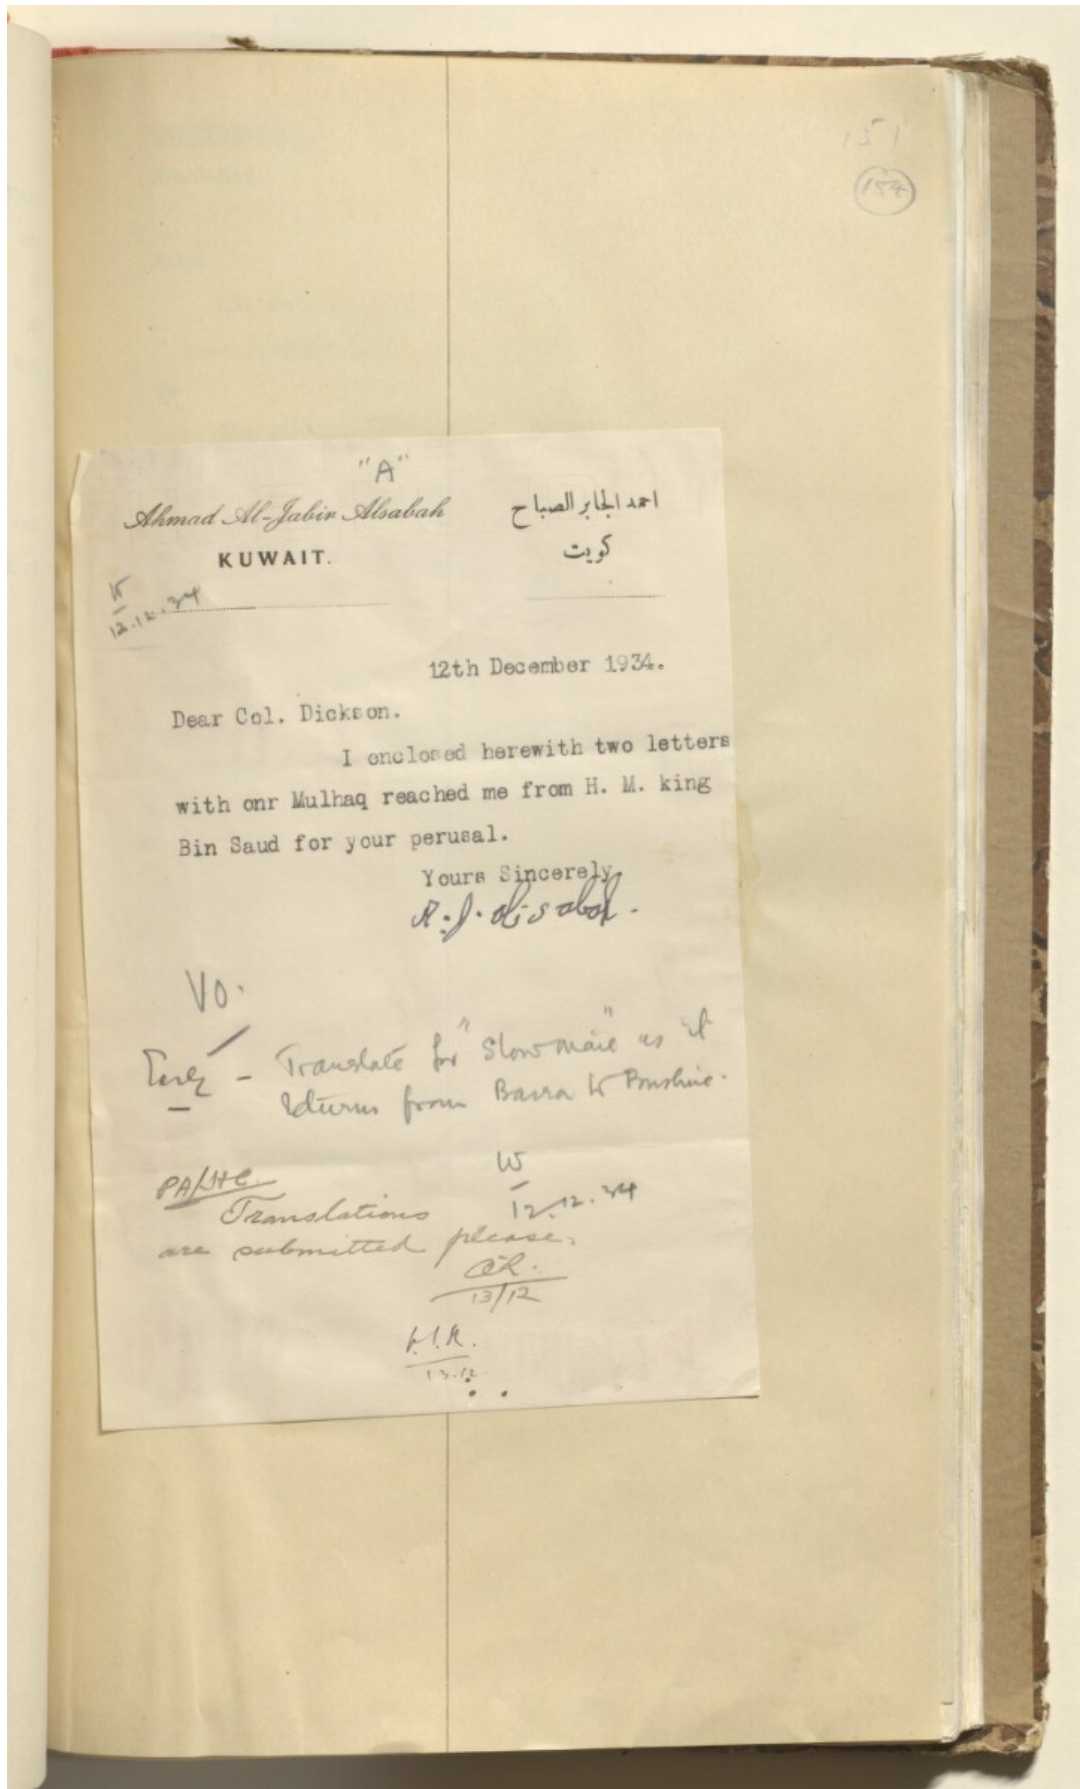 151
154
"A"
Ahmad Al-Jabir Alsabah
KUWAIT.
احمد الجابر الصباح
كويت
12.12.34
12th December 1934.
Dear Col. Dickson.
I enclosed herewith two letters
with onr Mulhaq reached me from H. M. king
Bin Saud for your perusal.
Yours Sincerely,
Translate for "Slow Mail" as it
returns from Basra to Bushire.
12.12.34
Translations
are submitted please.
13/12
13.12